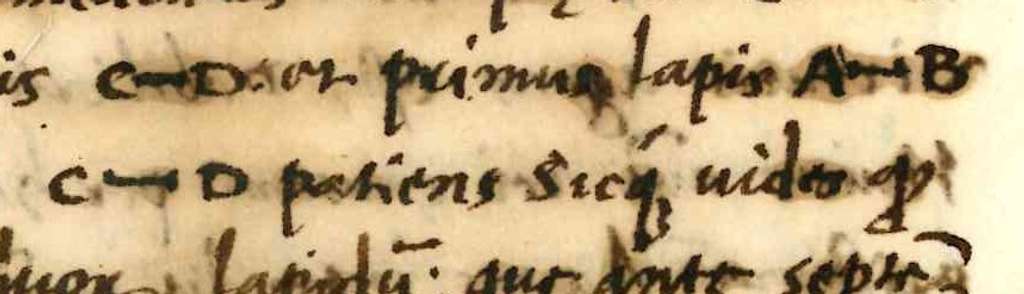 is C—D. et primus lapis A—B
C—D patiens Sicq; uides qp
lapidū. que ante septē